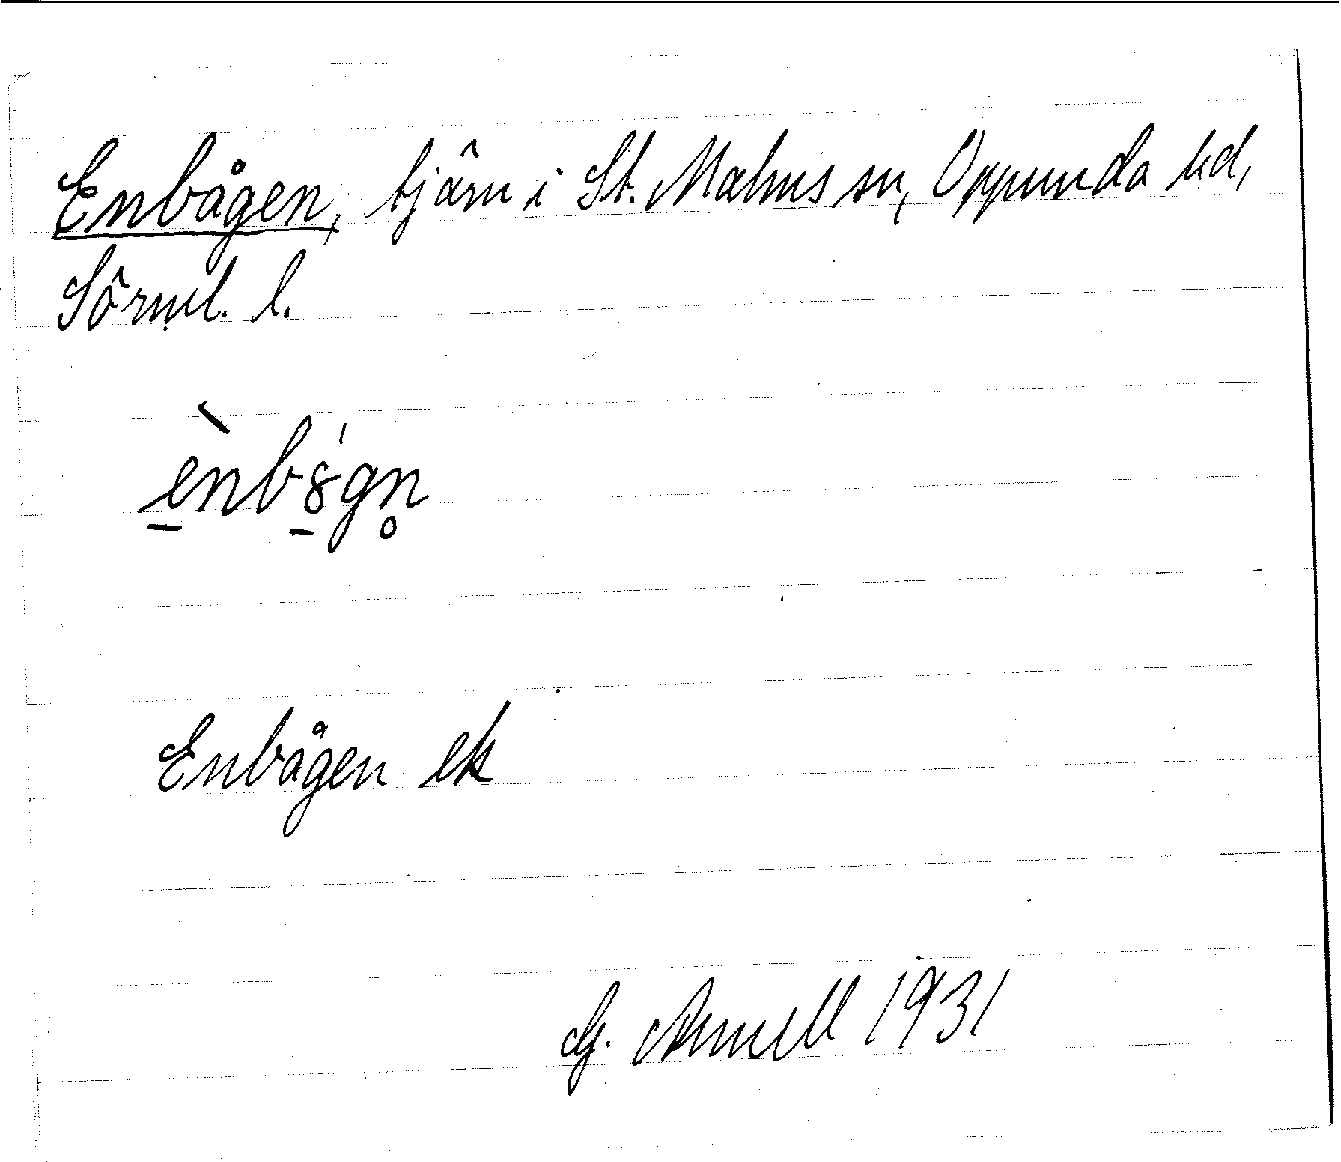 Enbågen, tjärn i St. Malms sn, Oppunda hd,
Sörml. l.
ènb8́gn̥
Enbågen ek
G. Annell 1931